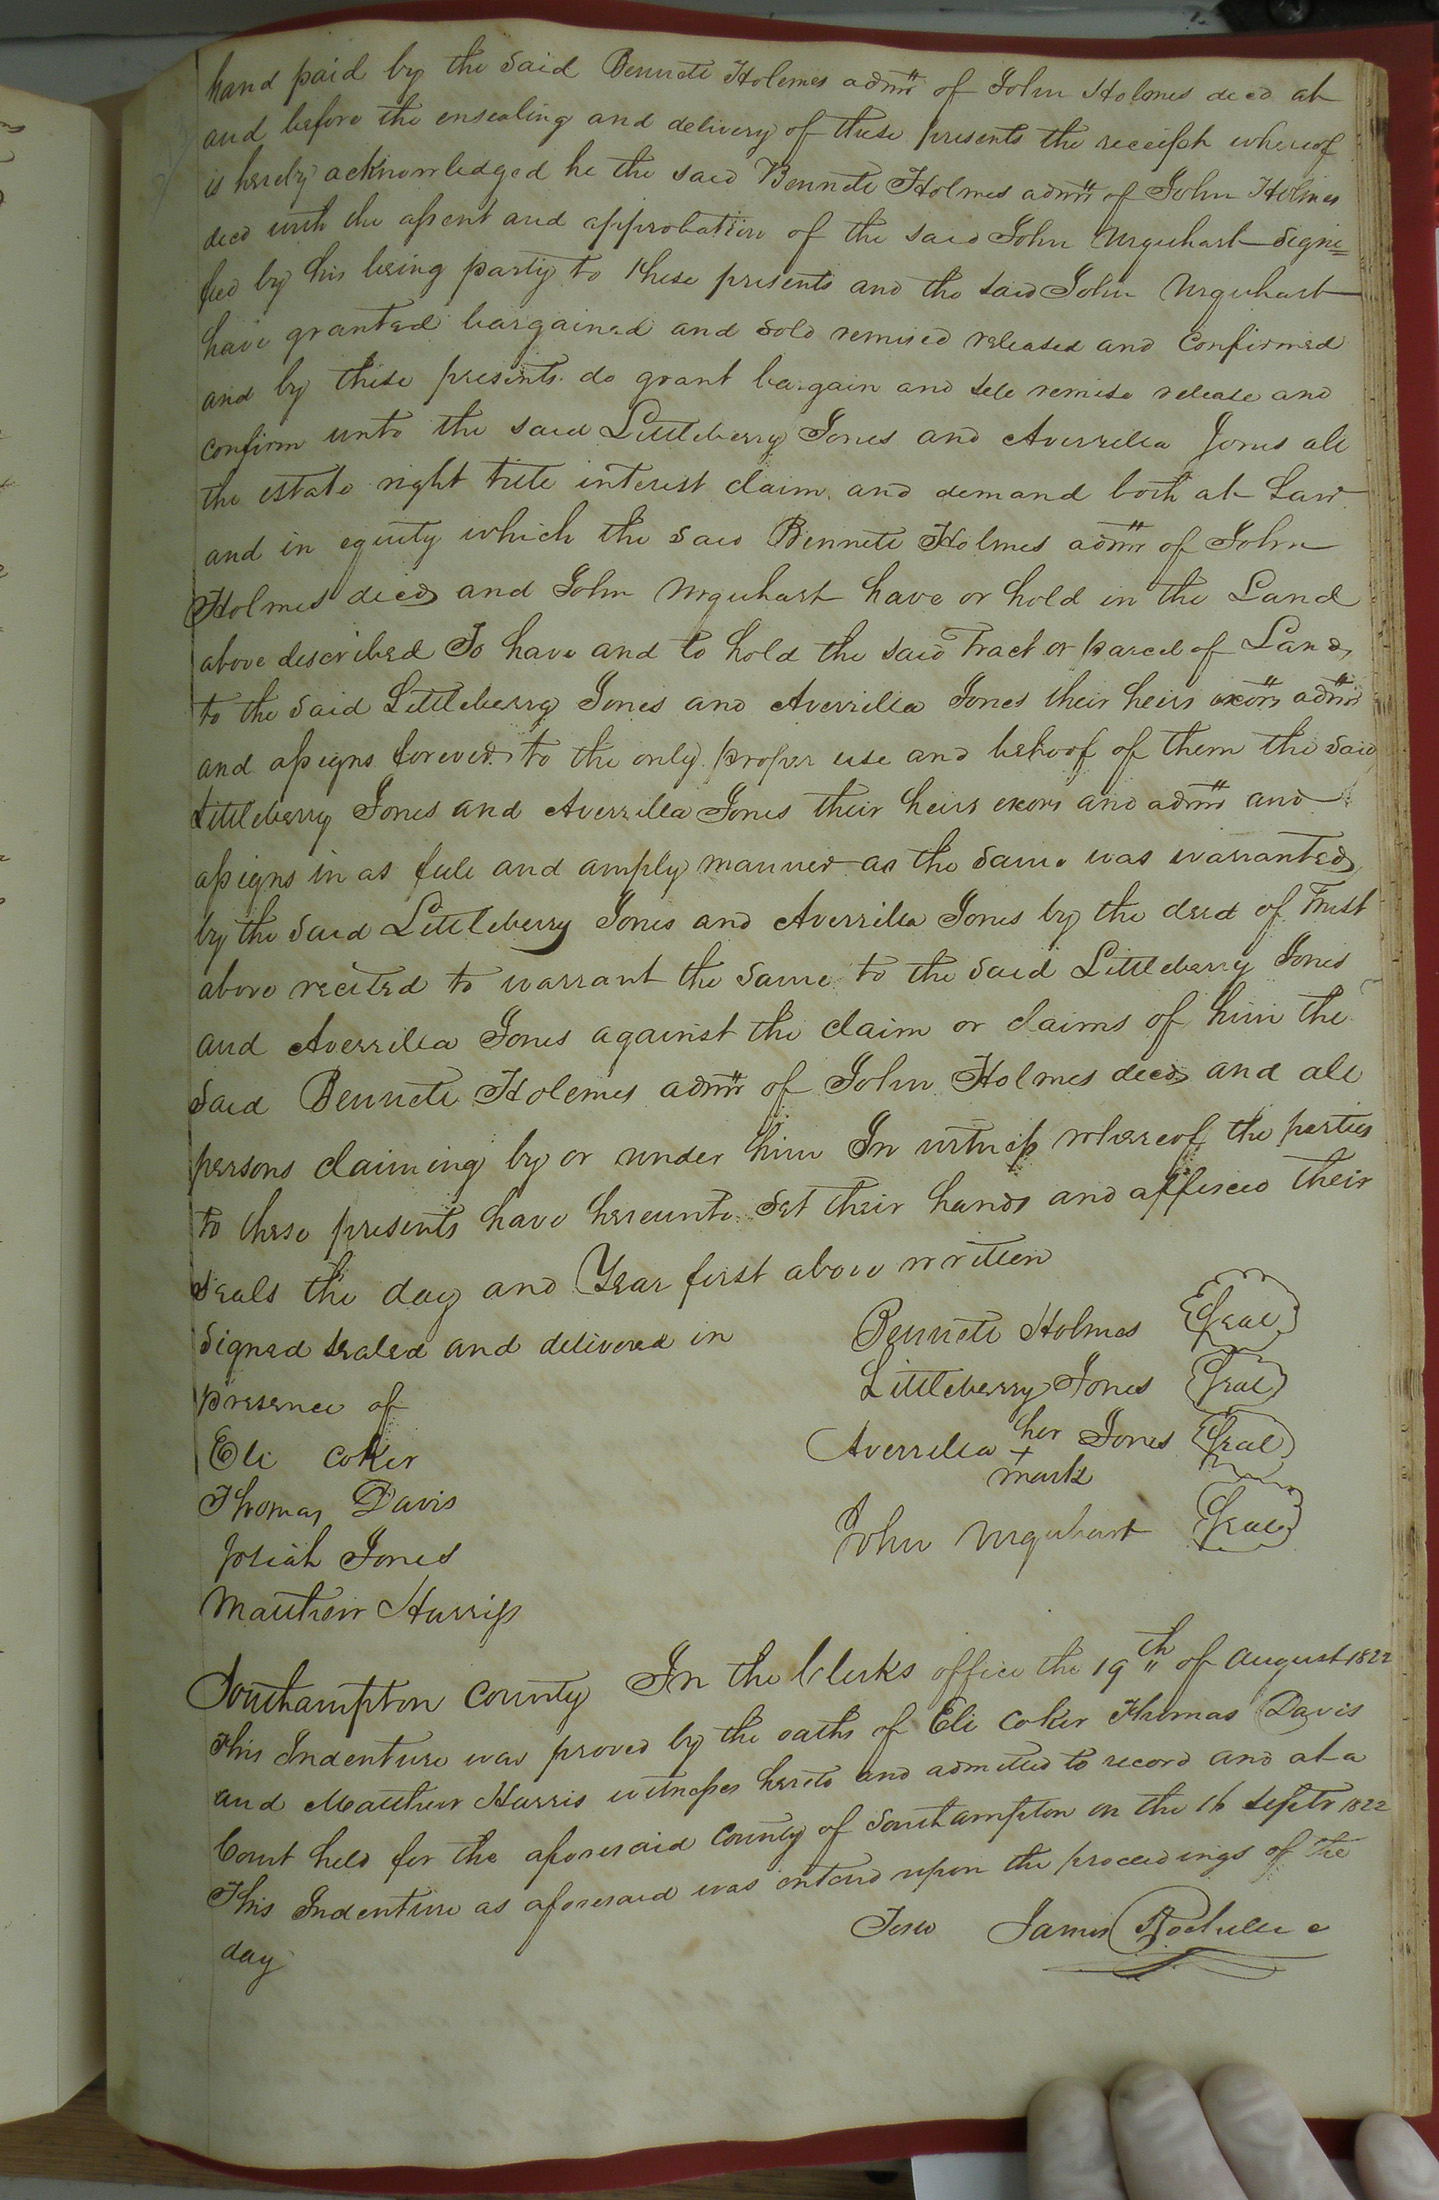 hand paid by the said Bennett Holemes admr of John Holmes decd at
and before the ensealing and delivery of these presents the receipt whereof
is hereby acknowledged he the said Bennett Holmes admr of John Holmes
decd with the assent and approbation of the said John Urquhart Signi=
fied by his being party to these presents and the said John Urquhart
have granted bargained and sold remised released and confirmed
and by these presents do grant bargain and sell remise release and
confirm unto the said Littleberry Jones and Averrilla Jones all
the estate right title interest claim and demand both at Law
and in equity which the said Bennett Holmes admr of John
Holmes decd and John Urquhart have or hold in the Land
above described To have and to hold the said Tract or parcel of Land
to the said Littleberry Jones and Averrilla Jones their heirs exors admrs
and assigns forever to the only proper use and behoof of them the said
Littleberry Jones and Averrilla Jones their heirs exors and admrs and
assigns in as full and amply manner as the same was warranted
by the said Littleberry Jones and Averrilla Jones by the deed of Trust
above recited to warrant the same to the said Littleberry Jones
and Averrilla Jones against the claim or claims of him the
said Bennett Holemes admr of John Holmes decd and all
persons claiming by or under him In witness whereof the parties
to these presents have hereunto set their hands and affixed their
seals the day and Year first above written
Signed sealed and delivered in
presence of
Eli Coker
Thomas Davis
Josiah Jones
Matthew Harriss
Bennett Holmes Seal
Littleberry Jones Seal
Averrilla her + mark Jones Seal
John Urquhart Seal
Southampton County In the Clerks office the 19th of August 1822
This Indenture was proved by the oaths of Eli Coker Thomas Davis
and Matthew Harris witnesses hereto and admitted to record and at a
Court held for the aforesaid County of Southampton on the 16 Septr 1822
This Indenture as aforesaid was enterd upon the proceedings of the
day
Teste James Rochelle c